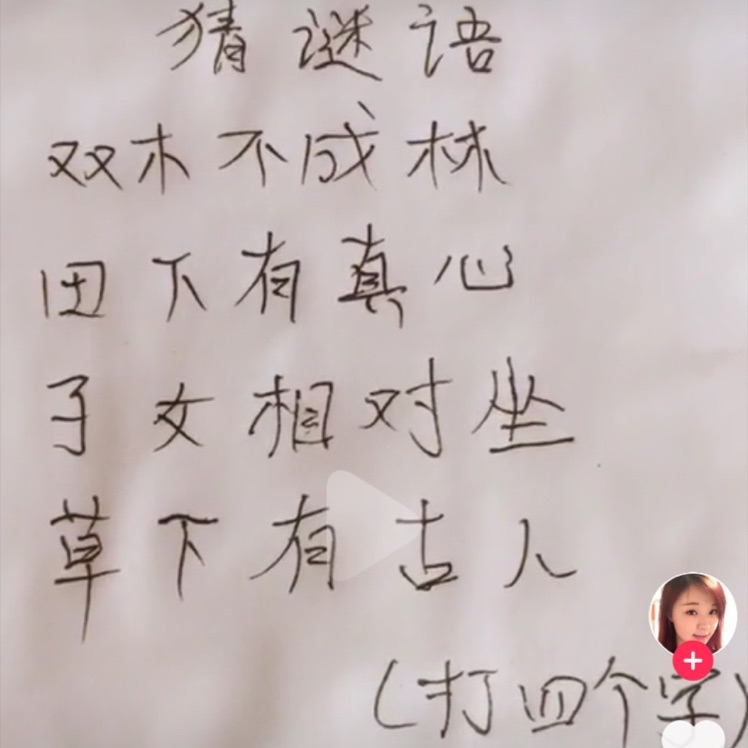 猜谜语
双木不成林
田下有真心
子女相对坐
草下有古人
(打四个字)